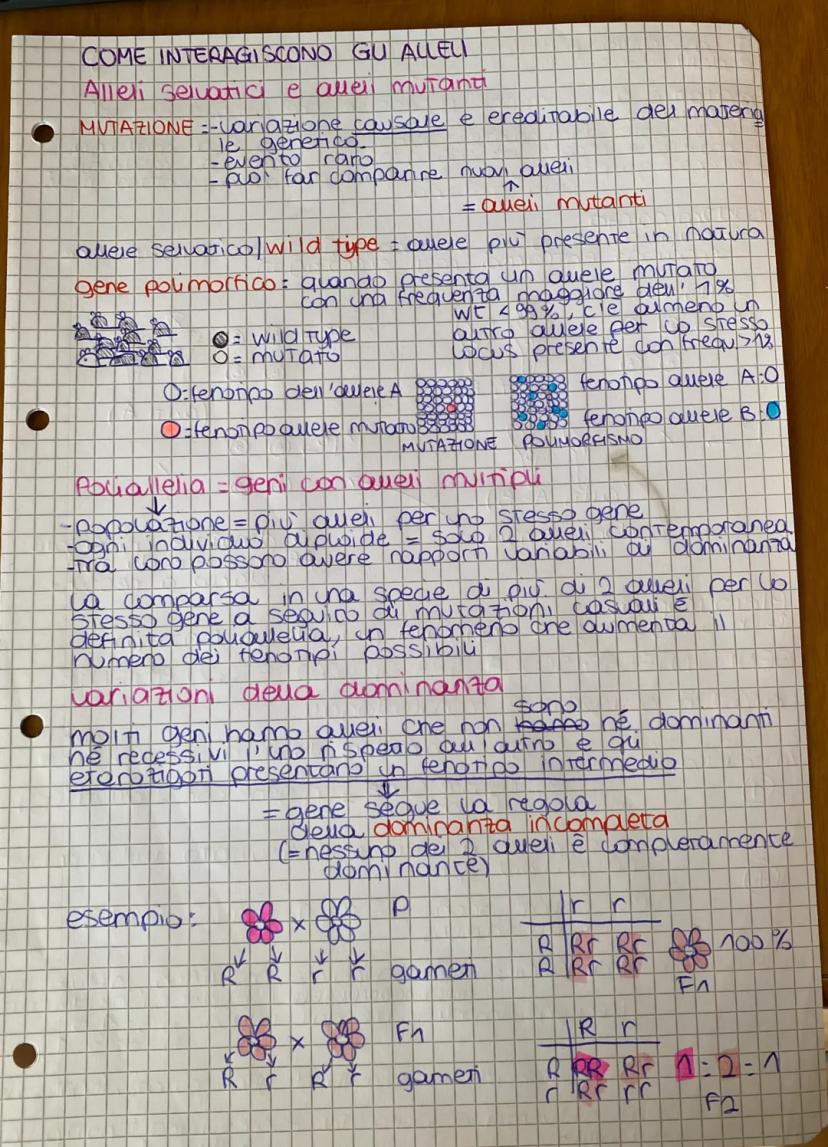 COME INTERAGISCONO GLI ALLELI
Alleli selvatici e alleli mutanti
MUTAZIONE = -variazione causale e ereditabile del materia
le genetico.
- evento raro
- può far comparire nuovi alleli
= alleli mutanti
allele selvatico/wild type = allele più presente in natura
gene polimorfico = quando presenta un allele mutato
con una frequenza maggiore dell'1%
WT <99%, c'è almeno un
altro allele per lo stesso
locus presente con frequ>1%
O = wild type
O = mutato
O = fenotipo dell'allele A
O = fenotipo allele mutato
MUTAZIONE
POLIMORFISMO
fenotipo allele A: O
fenotipo allele B: O
Poliallelia = geni con alleli multipli
-popolazione = più alleli per uno stesso gene
-ogni individuo diploide = solo 2 alleli contemporanea
-tra loro possono avere rapporti variabili di dominanza
La comparsa in una specie di più di 2 alleli per lo
stesso gene a seguito di mutazioni casuali è
definita poliallelia, un fenomeno che aumenta il
numero dei fenotipi possibili
variazioni della dominanza
molti geni hanno alleli che non hanno sono né dominanti
né recessivi l'uno rispetto all'altro e gli
eterozigoti presentano un fenotipo intermedio
= gene segue la regola
della dominanza incompleta
(=nessuno dei 2 alleli è completamente
dominante)
esempio:
x
P
R R r r gameti
r r
R Rr Rr
R Rr Rr
100%
F1
x
F1
R r R r gameti
R r
R RR Rr
r Rr rr
1 = 2 = 1
F2